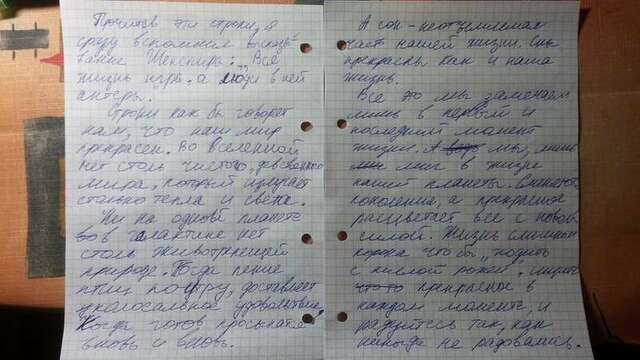 Прочитав эти строки, я
сразу вспомнил высказы-
вание Шекспира: „Вся
жизнь игра, а люди в ней
актеры."
Строки как бы говорят
нам, что наш мир
прекрасен. Во вселенной
нет столь чистого,
мира, который излучает
столько тепла и света.
Ни на одной планете
в галактике нет
столь животрепещей
природы. Когда пение
птиц по утру, доставляет
колосальное удовольствие,
Когда готов просыпаться
вновь и вновь.
А сон - неотъемлемая
часть нашей жизни. Сны
прекрасны как и наша
жизнь.
Все это мы замечаем
лишь в первый и
последний момент
жизни. А мы, лишь
миг в жизни
нашей планеты. Сменяются
поколения, а прекрасное
расцветает все с новой
силой. Жизнь слишком
коротка что бы „ходить
с кислой рожей".
что то прекрасное в
каждом моменте, и
радуйтесь так, как
никогда не радовались.